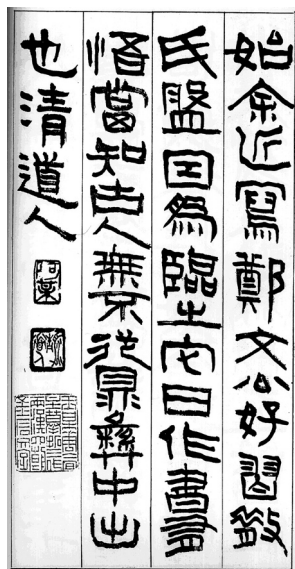 始余近寫鄭文公好習散
氏盤因為臨之它日作書
悟當知古人無不從鼎彝中出
也清道人